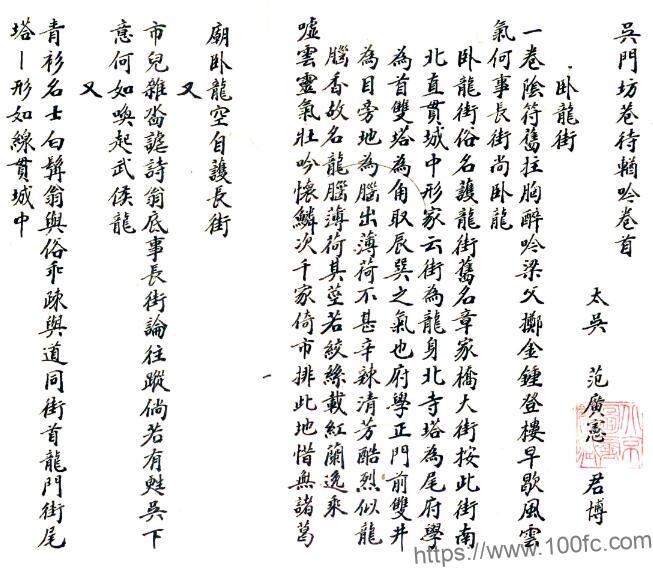 吳門坊巷待輶吟卷首
太吳 范廣憲 君博
卧龍街
一卷陰符舊拄胸醉吟梁父擲金鍾登樓早歇風雲
氣何事長街尚卧龍
卧龍街俗名護龍街舊名章家橋大街按此街南
北直貫城中形家云街為龍身北寺塔為尾府學
為首雙塔為角取辰巽之氣也府學正門前雙井
為目旁地為腦出薄荷不甚辛辣清芳酷烈似龍
腦香故名龍腦薄荷其莖若絞絲載紅蘭逸乘
噓雲靈氣壯吟懷鱗次千家倚市排此地惜無諸葛
廟卧龍空自護長街
又
市兒雜沓謔詩翁底事長街論往蹤倘若有甦吳下
意何如喚起武侯龍
又
青衫名士白髯翁與俗乖疎與道同街首龍門街尾
塔一形如線貫城中
https://www.100fc.com